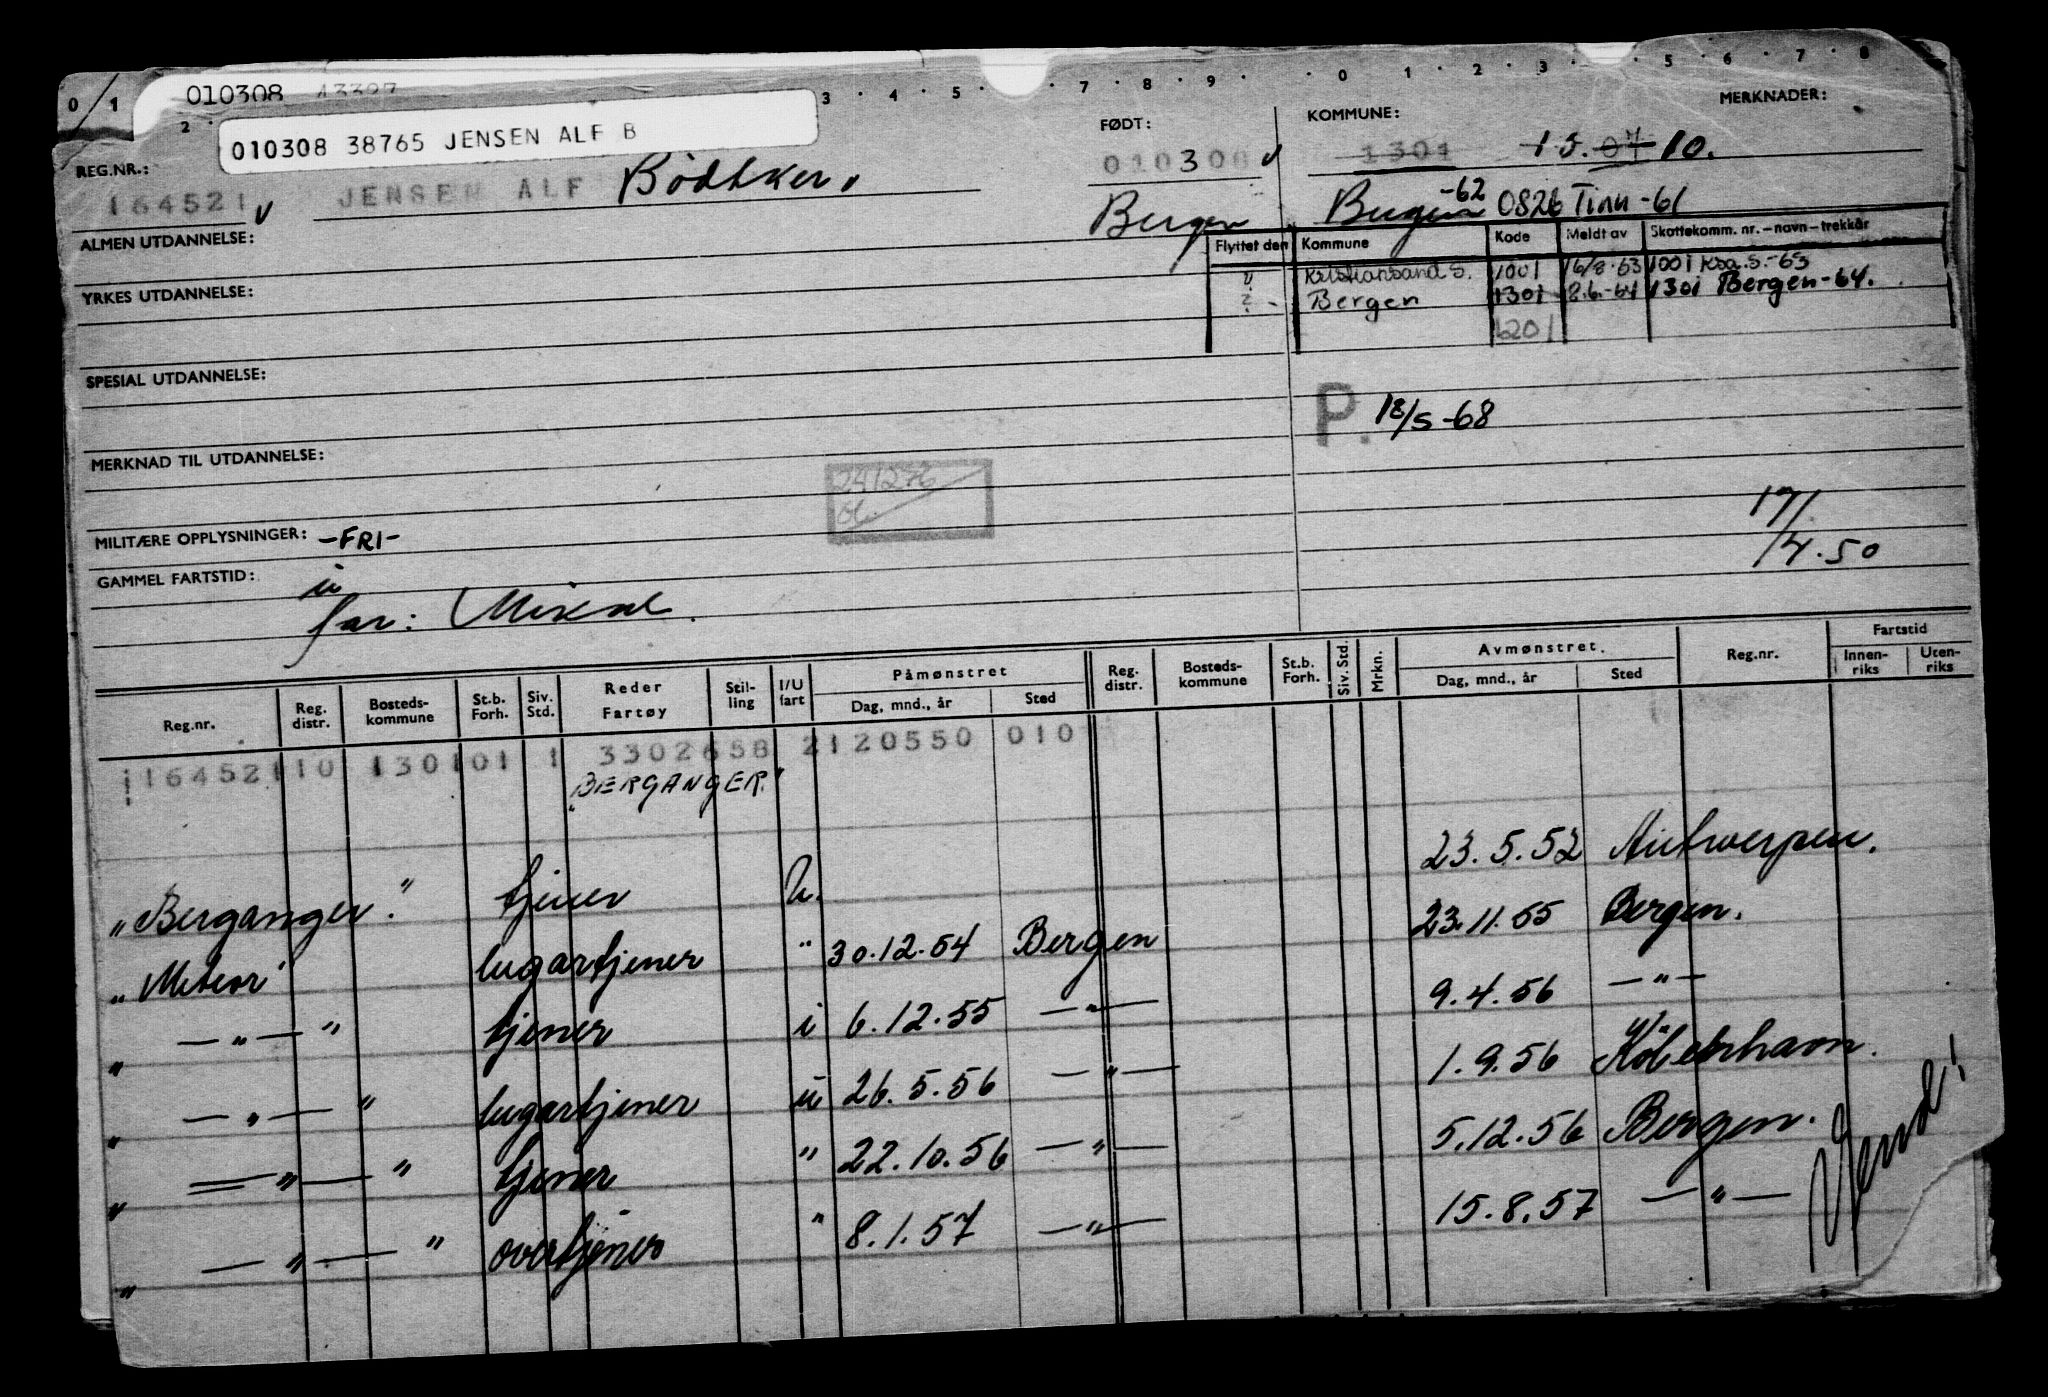 010308 43397
010308 38765 JENSEN ALF B
0 1 2 3 4 5 7 8 9 0 1 2 3 5 6 7 8
REG.NR.:
164521
JENSEN ALF Bödtker
FØDT:
010308
Bergen
KOMMUNE:
1301
MERKNADER:
15. 07 10.
Bergen -62 0826 Tinn -61
ALMEN UTDANNELSE:
Flyttet den Kommune Kode Meldt av Skattekomm. nr. – navn – trekkår
? Kristiansand S. 1001 16/8-63 1001 Krs. S. -63
? - Bergen 1301 8.6.-64 1301 Bergen -64.
1201
YRKES UTDANNELSE:
SPESIAL UTDANNELSE:
P. 18/5-68
MERKNAD TIL UTDANNELSE:
241276
MILITÆRE OPPLYSNINGER: -FRI-
17/
/4.50
GAMMEL FARTSTID:
ü
far: Mikal.
Reg.nr. Reg. distr. Bosteds-kommune St.b. Forh. Siv. Std. Reder Fartøy Stil-ling I/U fart Påmønstret Dag, mnd., år Sted Reg. distr. Bosteds-kommune St.b. Forh. Siv. Std. Mrkn. Avmønstret. Dag, mnd., år Sted Reg.nr. Fartstid Innen-riks Uten-riks
116452110 130101 1 3302658 2120550 010
"BERGANGER"
"Berganger." tjener U. 23.5.52 Antwerpen.
"Meteor" lugartjener " 30.12.54 Bergen 23.11.55 Bergen.
" — " — " tjener i 6.12.55 — " — 9.4.56 — " —
" — " — " lugartjener ü 26.5.56 — " — 1.9.56 Köbenhavn.
" — " — " tjener " 22.10.56 — " — 5.12.56 Bergen.
" — " — " overtjener " 8.1.57 — " — 15.8.57 — " —
Vend!